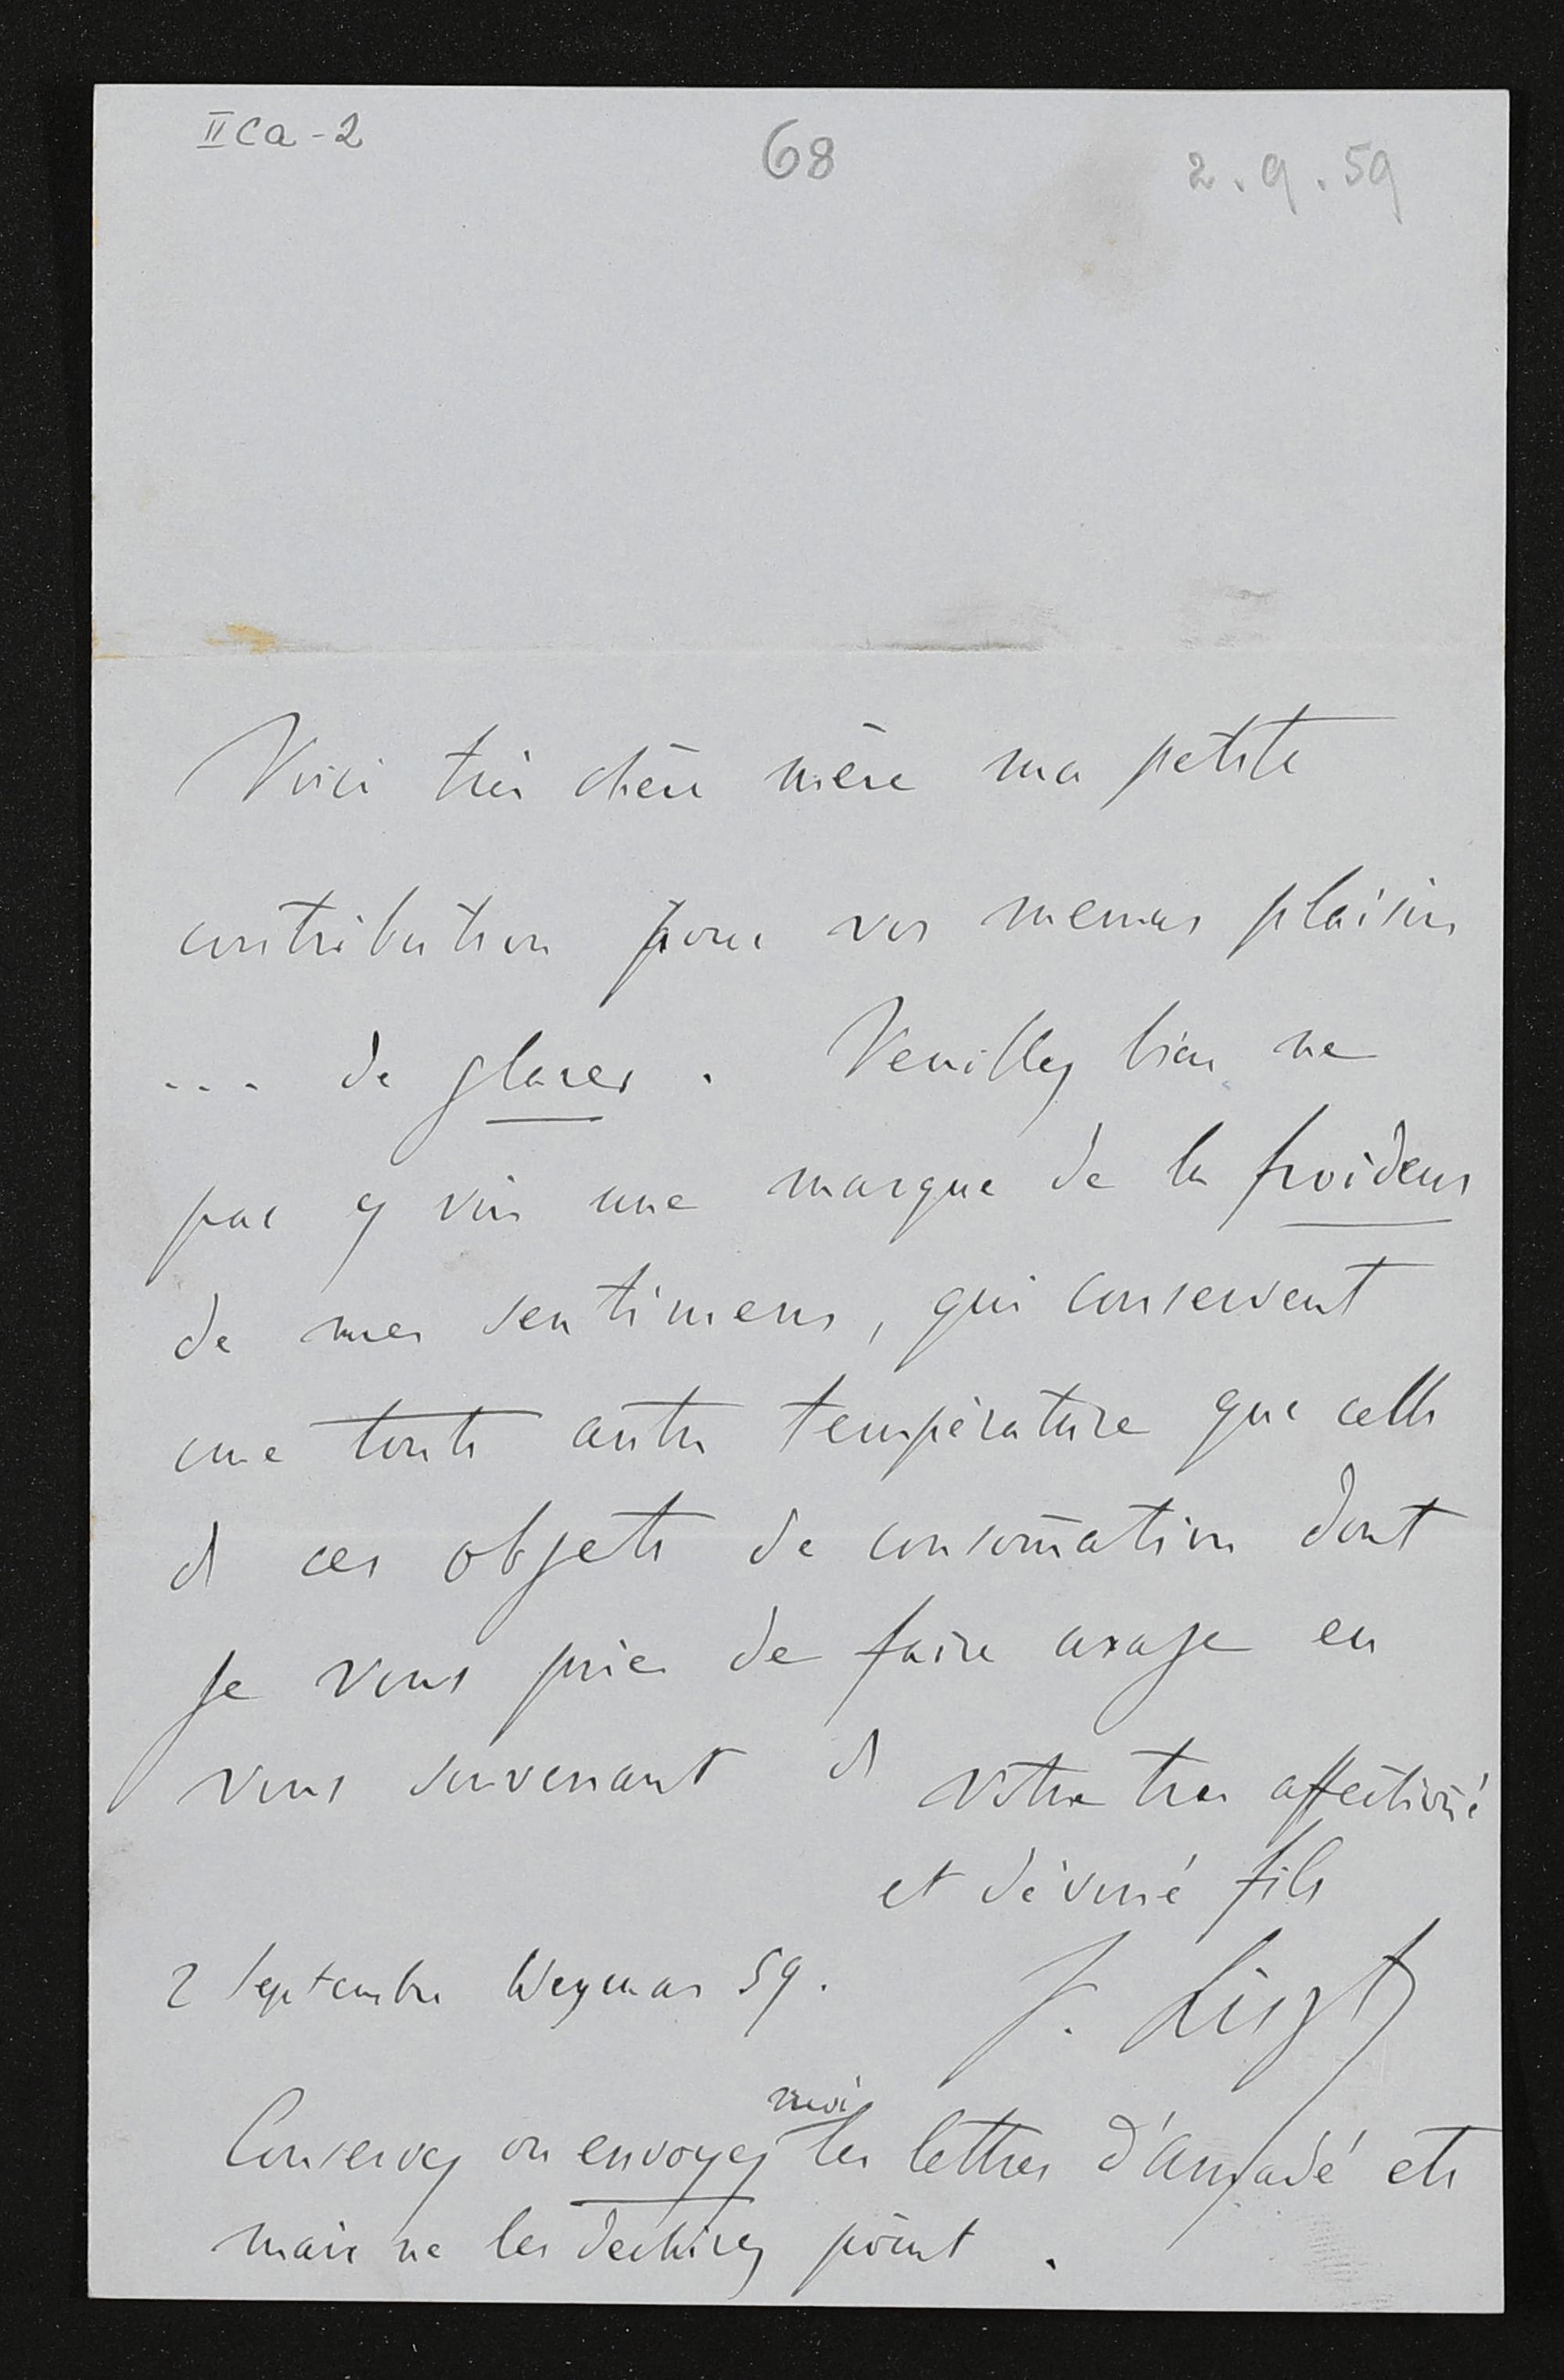 IICa-2
68
2.9.59
Voici très chère mère ma petite
contribution pour vos menus plaisirs
... de glaces. Veuillez bien ne
pas y voir une marque de la froideur
de mes sentimens, qui conservent
une toute autre température que celle
de ces objets de consom̄ation dont
je vous prie de faire usage en
vous souvenant de votre très affectioñé
et dévoué fils
2 Septembre Weymar 59.
F. Liszt
Conservez ou envoyez moi les lettres etc
mais ne les dechirez point.